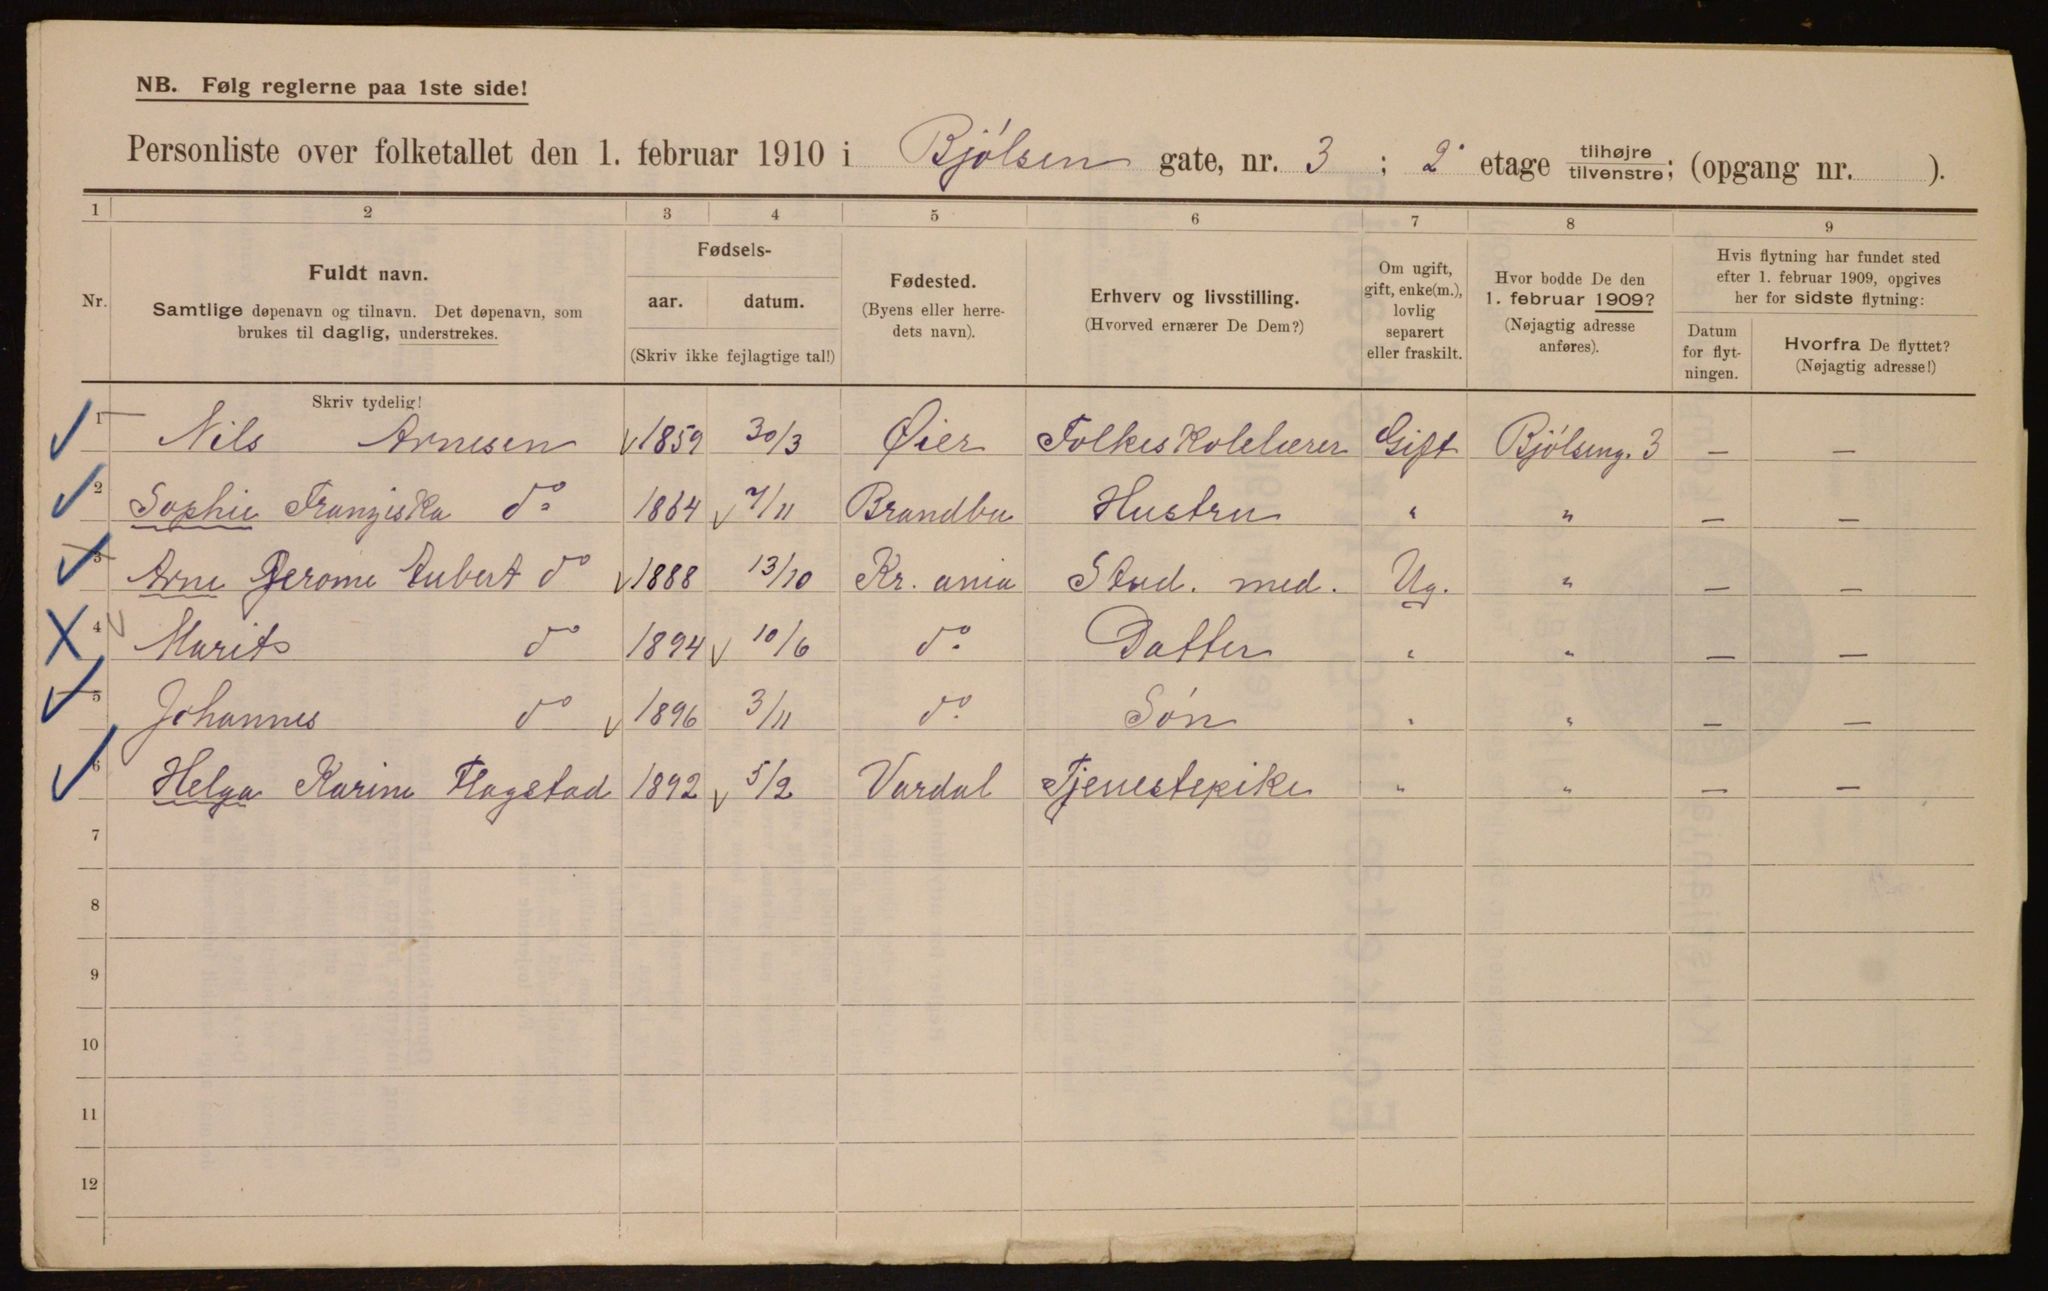 NB. Følg reglerne paa 1ste side!
Personliste over folketallet den 1. februar 1910 i Bjølsen gate, nr. 3 ; 2 etage tilhøjre tilvenstre; (opgang nr. ).
1 2 3 4 5 6 7 8 9
Nr.
Fuldt navn.
Samtlige døpenavn og tilnavn. Det døpenavn, som
brukes til daglig, understrekes.
Skriv tydelig!
Fødsels-
aar. datum.
(Skriv ikke fejlagtige tal!)
Fødested.
(Byens eller herre-
dets navn).
Erhverv og livsstilling.
(Hvorved ernærer De Dem?)
Om ugift,
gift, enke(m.),
lovlig
separert
eller fraskilt.
Hvor bodde De den
1. februar 1909?
(Nøjagtig adresse
anføres).
Hvis flytning har fundet sted
efter 1. februar 1909, opgives
her for sidste flytning:
Datum
for flyt-
ningen.
Hvorfra De flyttet?
(Nøjagtig adresse!)
1 Nils Arnesen 1859 30/3 Øier Folkeskolelærer Gift Bjølseng. 3 — —
2 Sophie Franziska do 1864 7/11 Brandbu Hustru " " — —
3 Arne Jerome Aubert do 1888 13/10 Kr.ania Stud. med. Ug. " — —
4 Marit do 1894 10/6 do. Datter " " — —
5 Johannes do 1896 3/11 do. Søn " " — —
6 Helga Karine Flagstad 1892 5/2 Vardal Tjenestepike " " — —
7
8
9
10
11
12